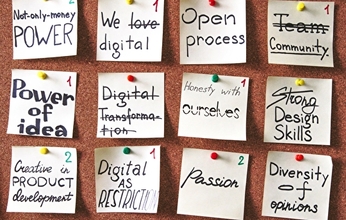 Not-only-money
POWER
2
We love
digital
1
Open
process
Team
Community
1
Power
of
idea
Digital
Transforma-
tion
1
Honesty with
ourselves
1
Strong
Design
Skills
Creative in
PRODUCT
development
2
Digital
AS
RESTRICTION
1
Passion
2
Diversity
of
opinions